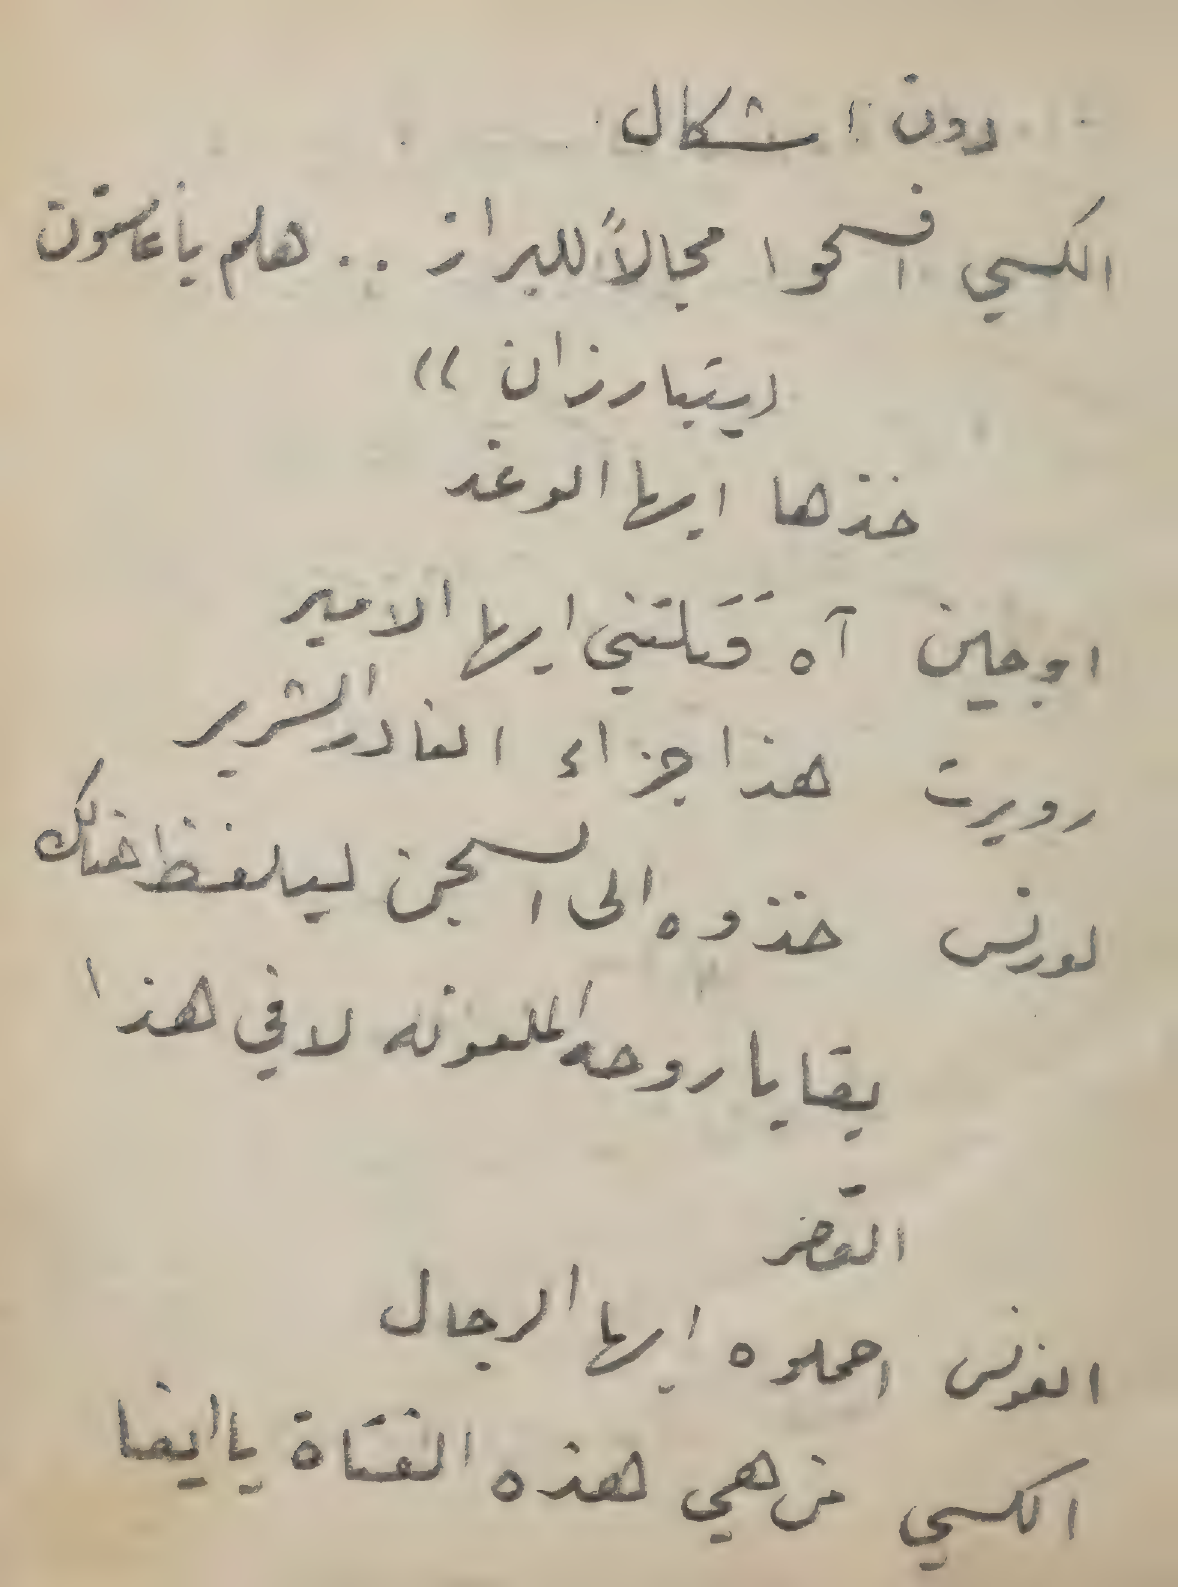 دون اشكال
الكسي افسحوا مجالاً للبراز .. هلم يا غاستون
(يتبارزان))
خذها ايها الوغد
اوجين آه قَتَلتَني ايها الامير
روبرت هذا جزاء الغادر الشرير
لورنس خذوه الى السجن ليلفظ هناك
بقايا روحه الملعونه لا في هذا
القصر
الفونس احملوه ايها الرجال
الكسي من هي هذه الفتاة يا ايفا